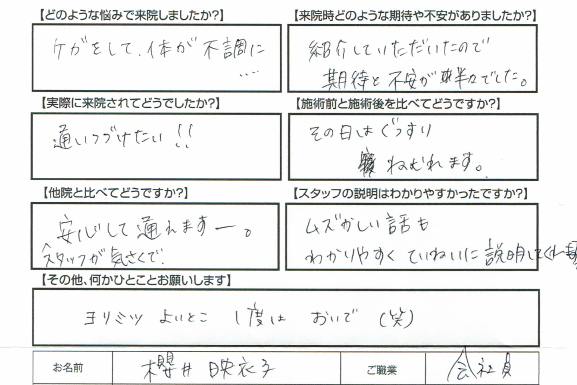 【どのような悩みで来院しましたか?】
ケガをして、体が不調に
....
【来院時どのような期待や不安がありましたか?】
紹介していただいたので
期待と不安が半々でした。
【実際に来院されてどうでしたか?】
通いつづけたい!!
【施術前と施術後を比べてどうですか?】
その日はぐっすり
ねむれます。
【他院と比べてどうですか?】
安心して通えますー。
スタッフが気さくで、
【スタッフの説明はわかりやすかったですか?】
ムズかしい話も
わかりやすくていねいに説明してくれ
【その他、何かひとことお願いします】
ヨリミツ よいとこ 1度は おいで (笑)
お名前 櫻井 映衣子
ご職業 会社員